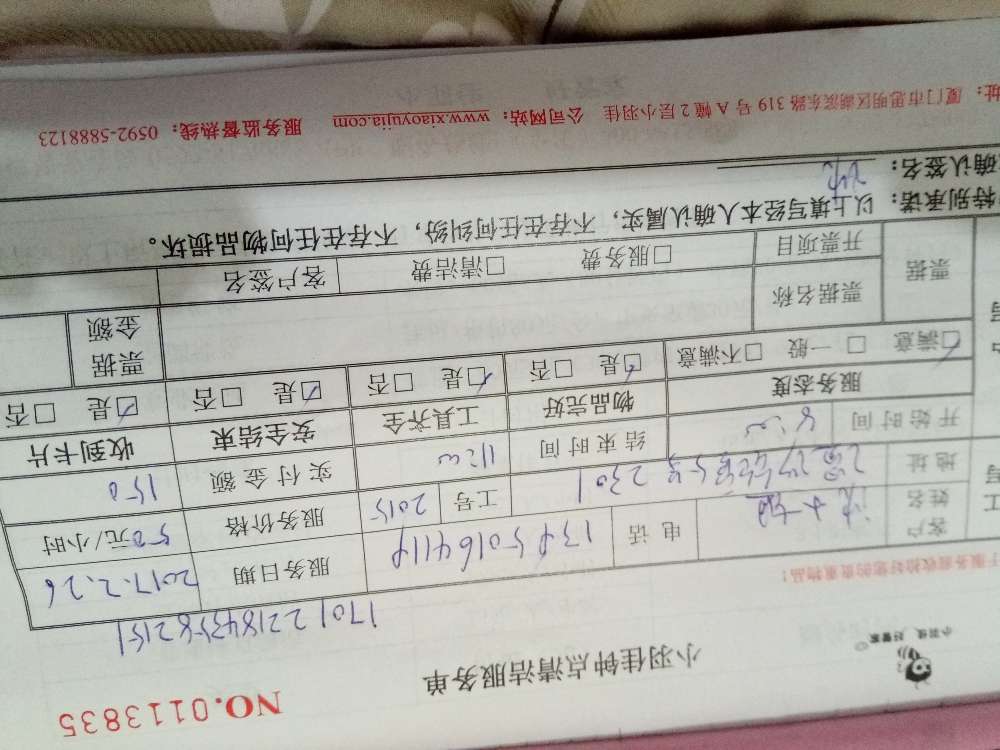 NO.0113835
小羽佳 好管家
小羽佳钟点清洁服务单
服务前收检好您的贵重物品！
客户姓名 电话 服务日期 2017.2.26
地址 2301 工号 2015 服务价格 50元/小时
开始时间 8:00 结束时间 11:00 实付金额 150
服务态度 物品完好 工具齐全 安全结束 收到卡片
☑满意 □一般 □不满意 ☑是 □否 ☑是 □否 ☑是 □否 ☑是 □否
票据 票据名称 票据金额
开票项目 □服务费 □清洁费 客户签名
特别承诺：以上填写经本人确认属实，不存在任何纠纷，不存在任何物品损坏。
确认签名：
址：厦门市思明区湖滨东路 319 号 A 幢 2 层小羽佳 公司网站：www.xiaoyujia.com 服务监督热线：0592-5888123